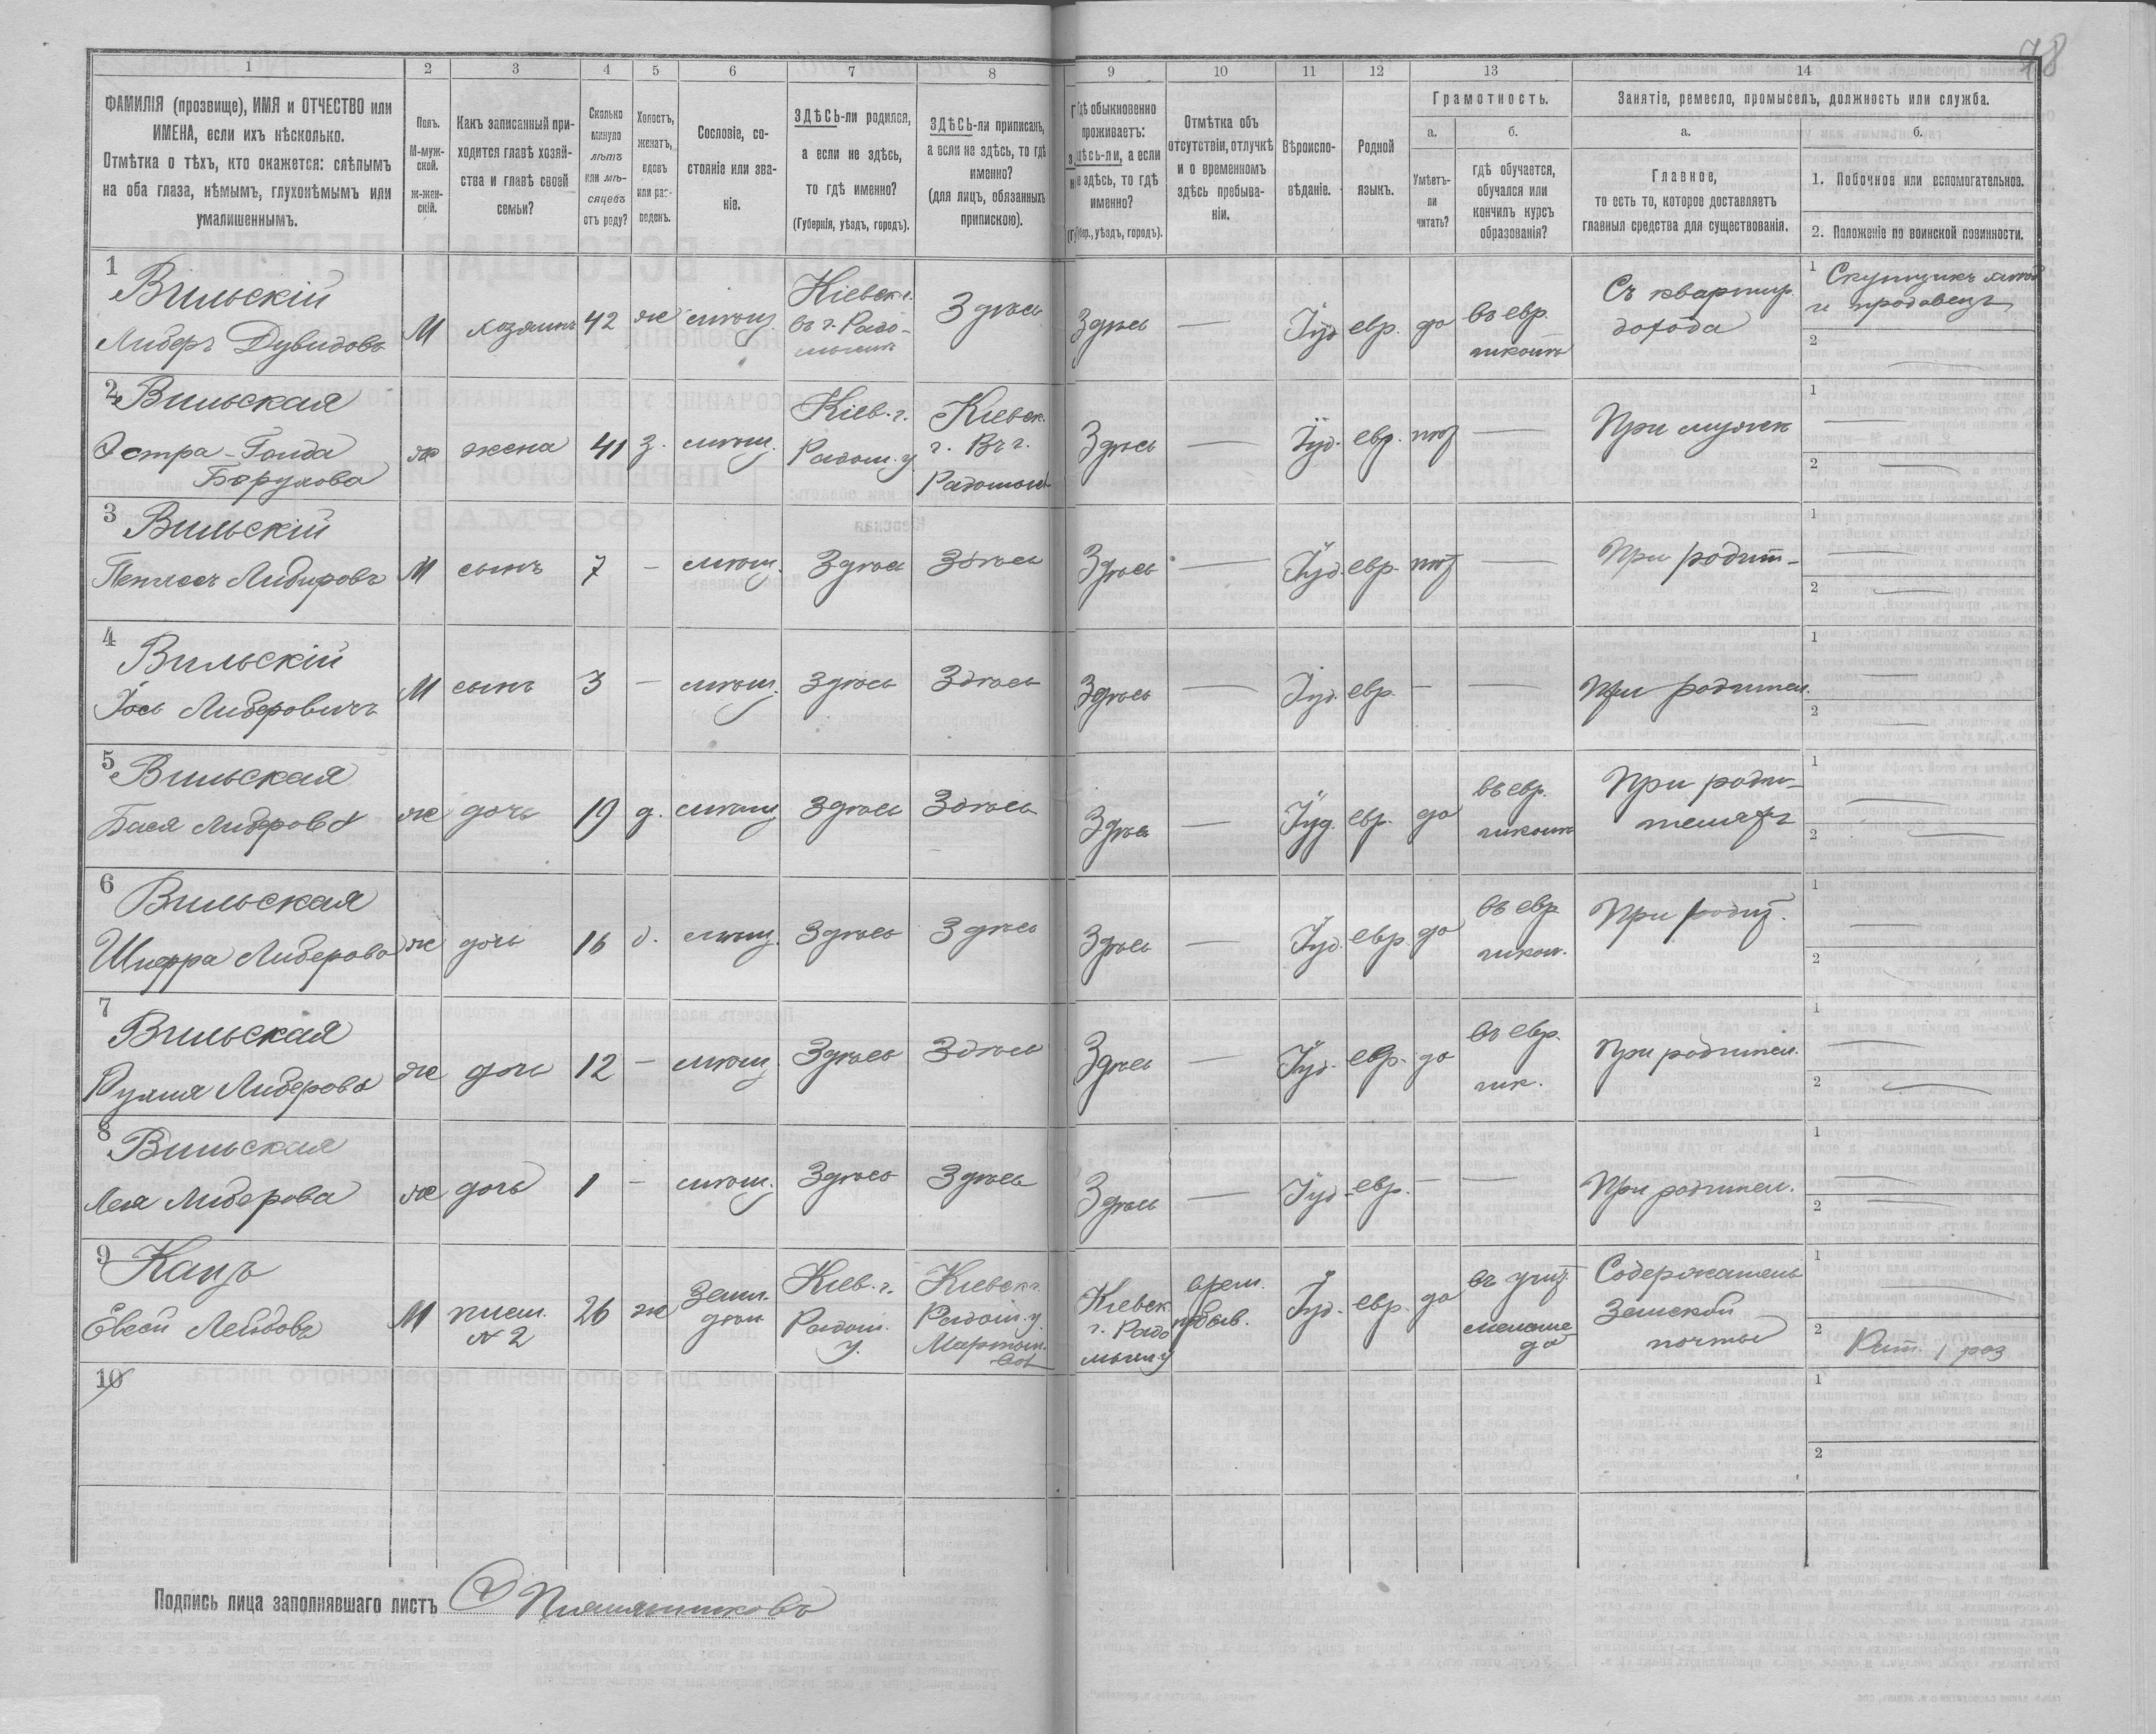 78
1 2 3 4 5 6 7 8 9 10 11 12 13 14
ФАМИЛІЯ (прозвище), ИМЯ и ОТЧЕСТВО или
ИМЕНА, если ихъ нѣсколько.
Отмѣтка о тѣхъ, кто окажется: слѣпымъ
на оба глаза, нѣмымъ, глухонѣмымъ или
умалишеннымъ.
Полъ.
М-муж-
ской.
ж-жен-
скій.
Какъ записанный при-
ходится главѣ хозяй-
ства и главѣ своей
семьи?
Сколько
минуло
лѣтъ
или мѣ-
сяцевъ
отъ роду?
Холостъ,
женатъ,
вдовъ
или раз-
веденъ.
Сословіе, со-
стояніе или зва-
ніе.
ЗДѢСЬ-ли родился,
а если не здѣсь,
то гдѣ именно?
(Губернія, уѣздъ, городъ).
ЗДѢСЬ-ли приписанъ,
а если не здѣсь, то гдѣ
именно?
(для лицъ, обязанныхъ
припискою).
Гдѣ обыкновенно
проживаетъ:
здѣсь-ли, а если
не здѣсь, то гдѣ
именно?
(Губер., уѣздъ, городъ).
Отмѣтка объ
отсутствіи, отлучкѣ
и о временномъ
здѣсь пребыва-
ніи.
Вѣроиспо-
вѣданіе.
Родной
языкъ.
Грамотность.
а.
Умѣетъ-
ли
читать?
б.
гдѣ обучается,
обучался или
кончилъ курсъ
образованія?
Занятіе, ремесло, промыселъ, должность или служба.
а.
Главное,
то есть то, которое доставляетъ
главныя средства для существованія.
б.
1. Побочное или вспомогательное.
2. Положеніе по воинской повинности.
1 Вильскій
Либеръ Дувидовъ
М хозяинъ 42 ж мѣщ.
Кіевск. г.
въ г. Радо-
мыслѣ
Здѣсь Здѣсь — Іуд евр. да
въ евр.
школѣ
Съ квартир.
дохода
1 Скупщикъ
и продавецъ
2 —
2 Вильская
Эстра-Голда
Борухова
ж жена 41 з. мѣщ.
Кіев. г.
Радом. у
Кіевск.
г. Въ г.
Здѣсь — Іуд. евр. нѣт —
При мужѣ
1 —
2 —
3 Вильскій
Либеровъ
М сынъ 7 — мѣщ. Здѣсь Здѣсь Здѣсь — Іуд. евр. нѣт —
При родит-
1 —
2 —
4 Вильскій
Іось Либеровичъ
М сынъ 3 — мѣщ. Здѣсь Здѣсь Здѣсь — Іуд. евр. — —
При родител.
1 —
2 —
5 Вильская
Бася Либерова
ж дочь 19 д. мѣщ Здѣсь Здѣсь Здѣсь — Іуд. евр. да
въ евр.
школѣ
При роди-
теляхъ
1 —
2 —
6 Вильская
Шифра Либерова
ж дочь 16 д. мѣщ. Здѣсь Здѣсь Здѣсь — Іуд. евр. да
въ евр
школ.
При родит.
1 —
2 —
7 Вильская
Рухля Либерова
ж дочь 12 — мѣщ. Здѣсь Здѣсь Здѣсь — Іуд. евр. да
въ евр.
шк.
При родител.
1 —
2 —
8 Вильская
Лея Либерова
ж дочь 1 — мѣщ. Здѣсь Здѣсь Здѣсь — Іуд. евр. — —
При родител.
1 —
2 —
9 Кацъ
Евсей Лейбовъ
М
плем.
№ 2
26 ж
Земл.
дѣл
Кіев. г.
Радом.
у.
Кіевск. г.
Радом. у.
Кіевск.
г. Радо
мысл. у
врем.
пребыв.
Іуд. евр. да
въ учит.
Содержатель
Земской
почты
1 —
2 Рат. 1 раз
10
1
2
Подпись лица заполнявшаго листъ